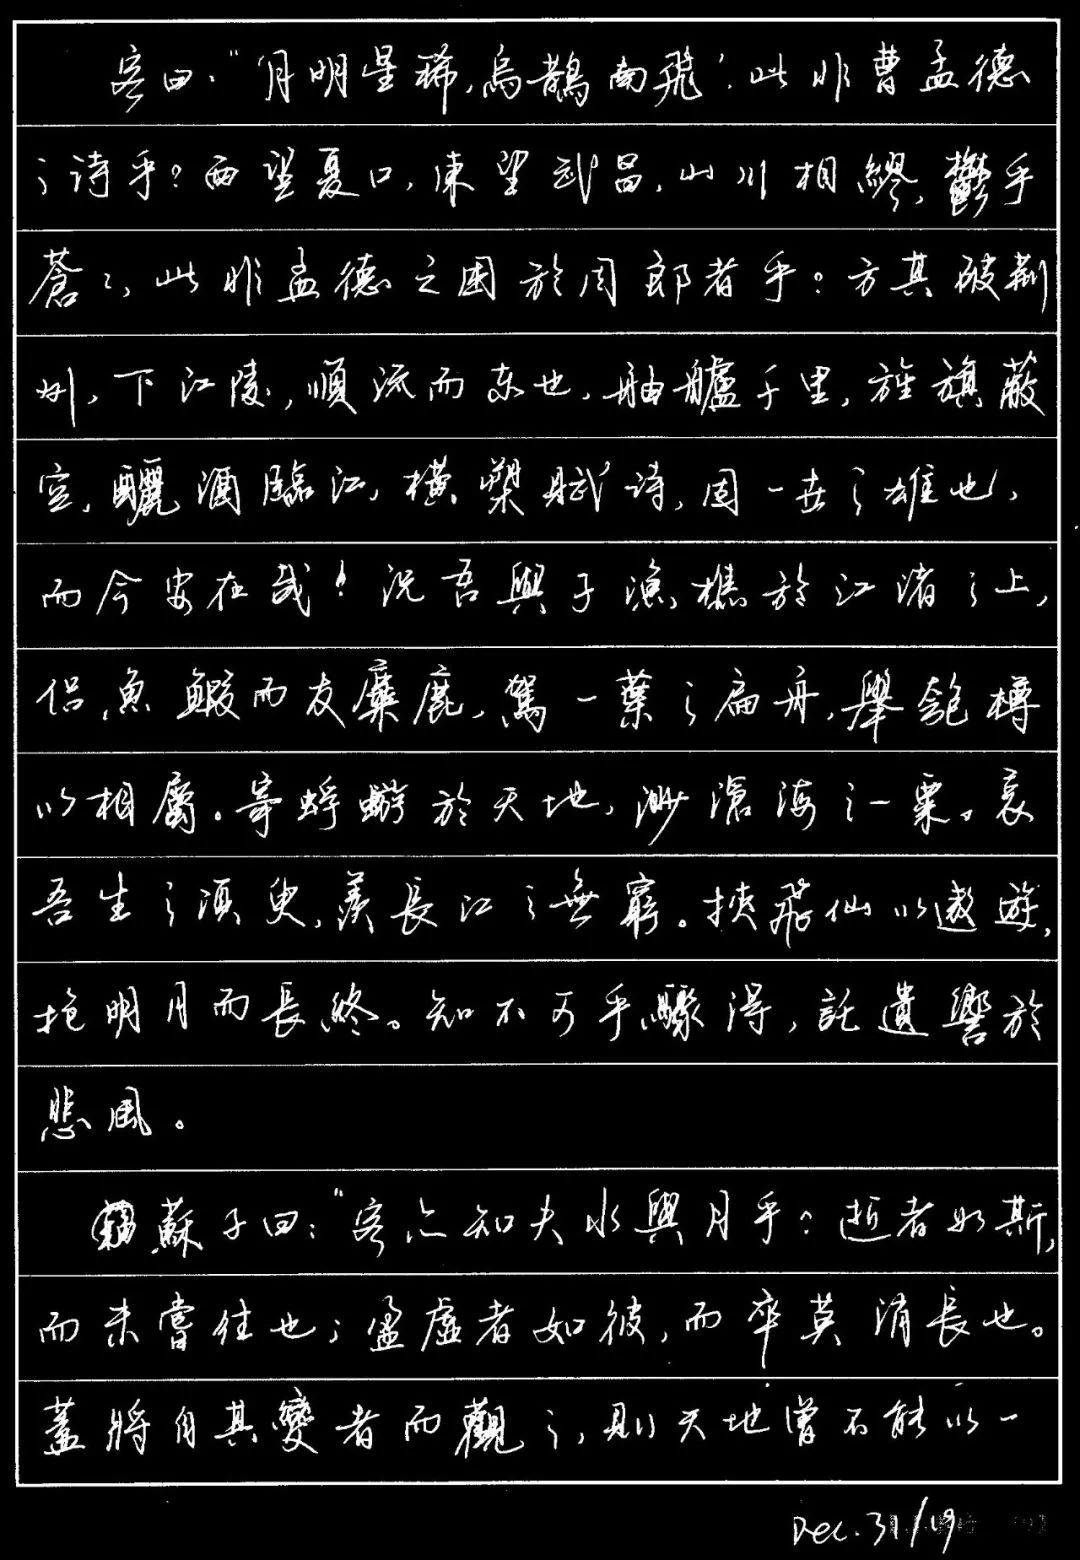 客曰："'月明星稀，烏鵲南飛'，此非曹孟德
之詩乎？西望夏口，東望武昌，山川相繆，鬱乎
蒼々，此非孟德之困於周郎者乎？方其破荊
州，下江陵，順流而东也，舳艫千里，旌旗蔽
空，釃酒臨江，橫槊賦诗，固一世之雄也，
而今安在哉！况吾與子漁樵於江渚之上，
侣魚鰕而友麋鹿，駕一葉之扁舟，舉匏樽
以相屬。寄蜉蝣於天地，渺滄海之一粟。哀
吾生之須臾，羨長江之無窮。挾飛仙以遨遊，
抱明月而長終。知不可乎驟得，託遺響於
悲風。
蘇子曰："客亦知夫水與月乎？逝者如斯，
而未嘗往也；盈虛者如彼，而卒莫消長也。
蓋將自其變者而觀之，則天地曾不能以一
Dec. 31/19